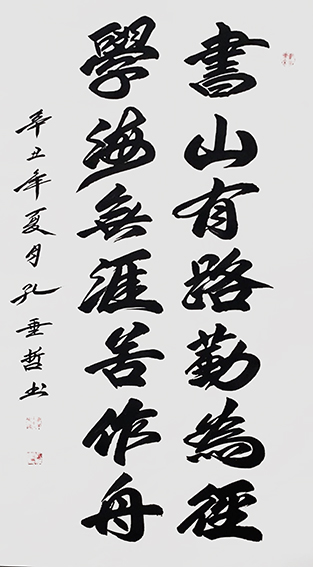 書山有路勤為徑
學海無涯苦作舟
辛丑年夏月孔垂哲书